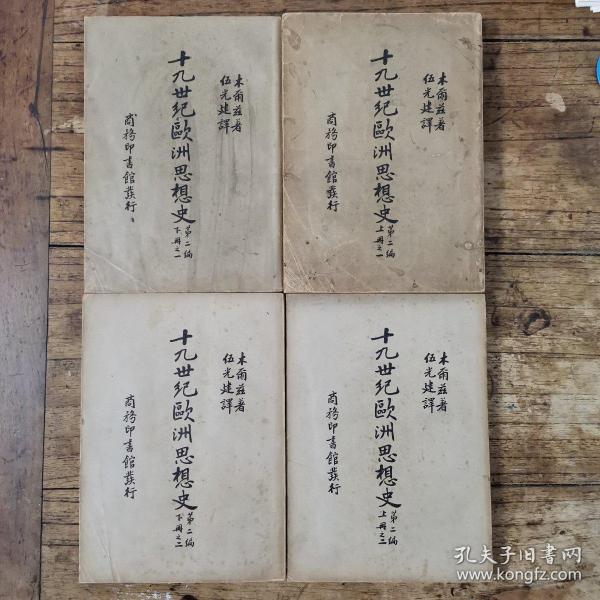 木爾兹著
伍光建譯
十九世紀歐洲思想史 第二編 下冊之一
商務印書館發行
木爾兹著
伍光建譯
十九世紀歐洲思想史 第二編 上冊之一
商務印書館發行
木爾兹著
伍光建譯
十九世紀歐洲思想史 第二編 下冊之二
商務印書館發行
木爾兹著
伍光建譯
十九世紀歐洲思想史 第二編 上冊之二
商務印書館發行
孔夫子旧书网
www.kongfz.com